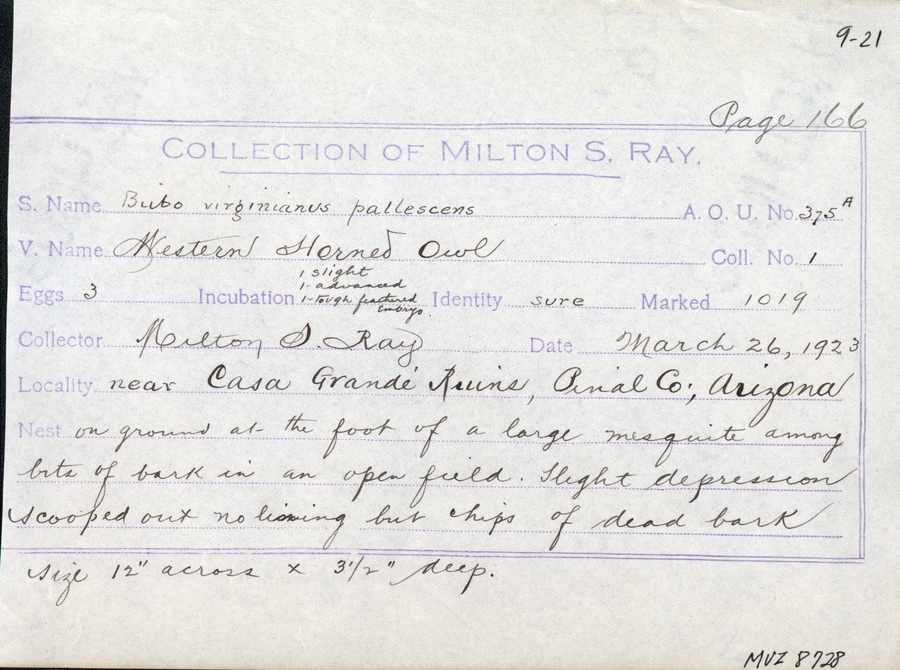 9-21
Page 166
COLLECTION OF MILTON S. RAY.
S. Name Bubo virginianus pallescens A. O. U. No. 375A
V. Name Western Horned Owl Coll. No. 1
1 slight
1- advanced
Eggs 3 Incubation 1-tough feathered Identity sure Marked 1019
Embryo
Collector Milton S. Ray Date March 26, 1923
Locality near Casa Grande Ruins, Pinal Co., Arizona
Nest on ground at the foot of a large mesquite among
bits of bark in an open field. Slight depression
scooped out no lining but chips of dead bark
size 12" across x 3 1/2" deep.
MVZ 8728